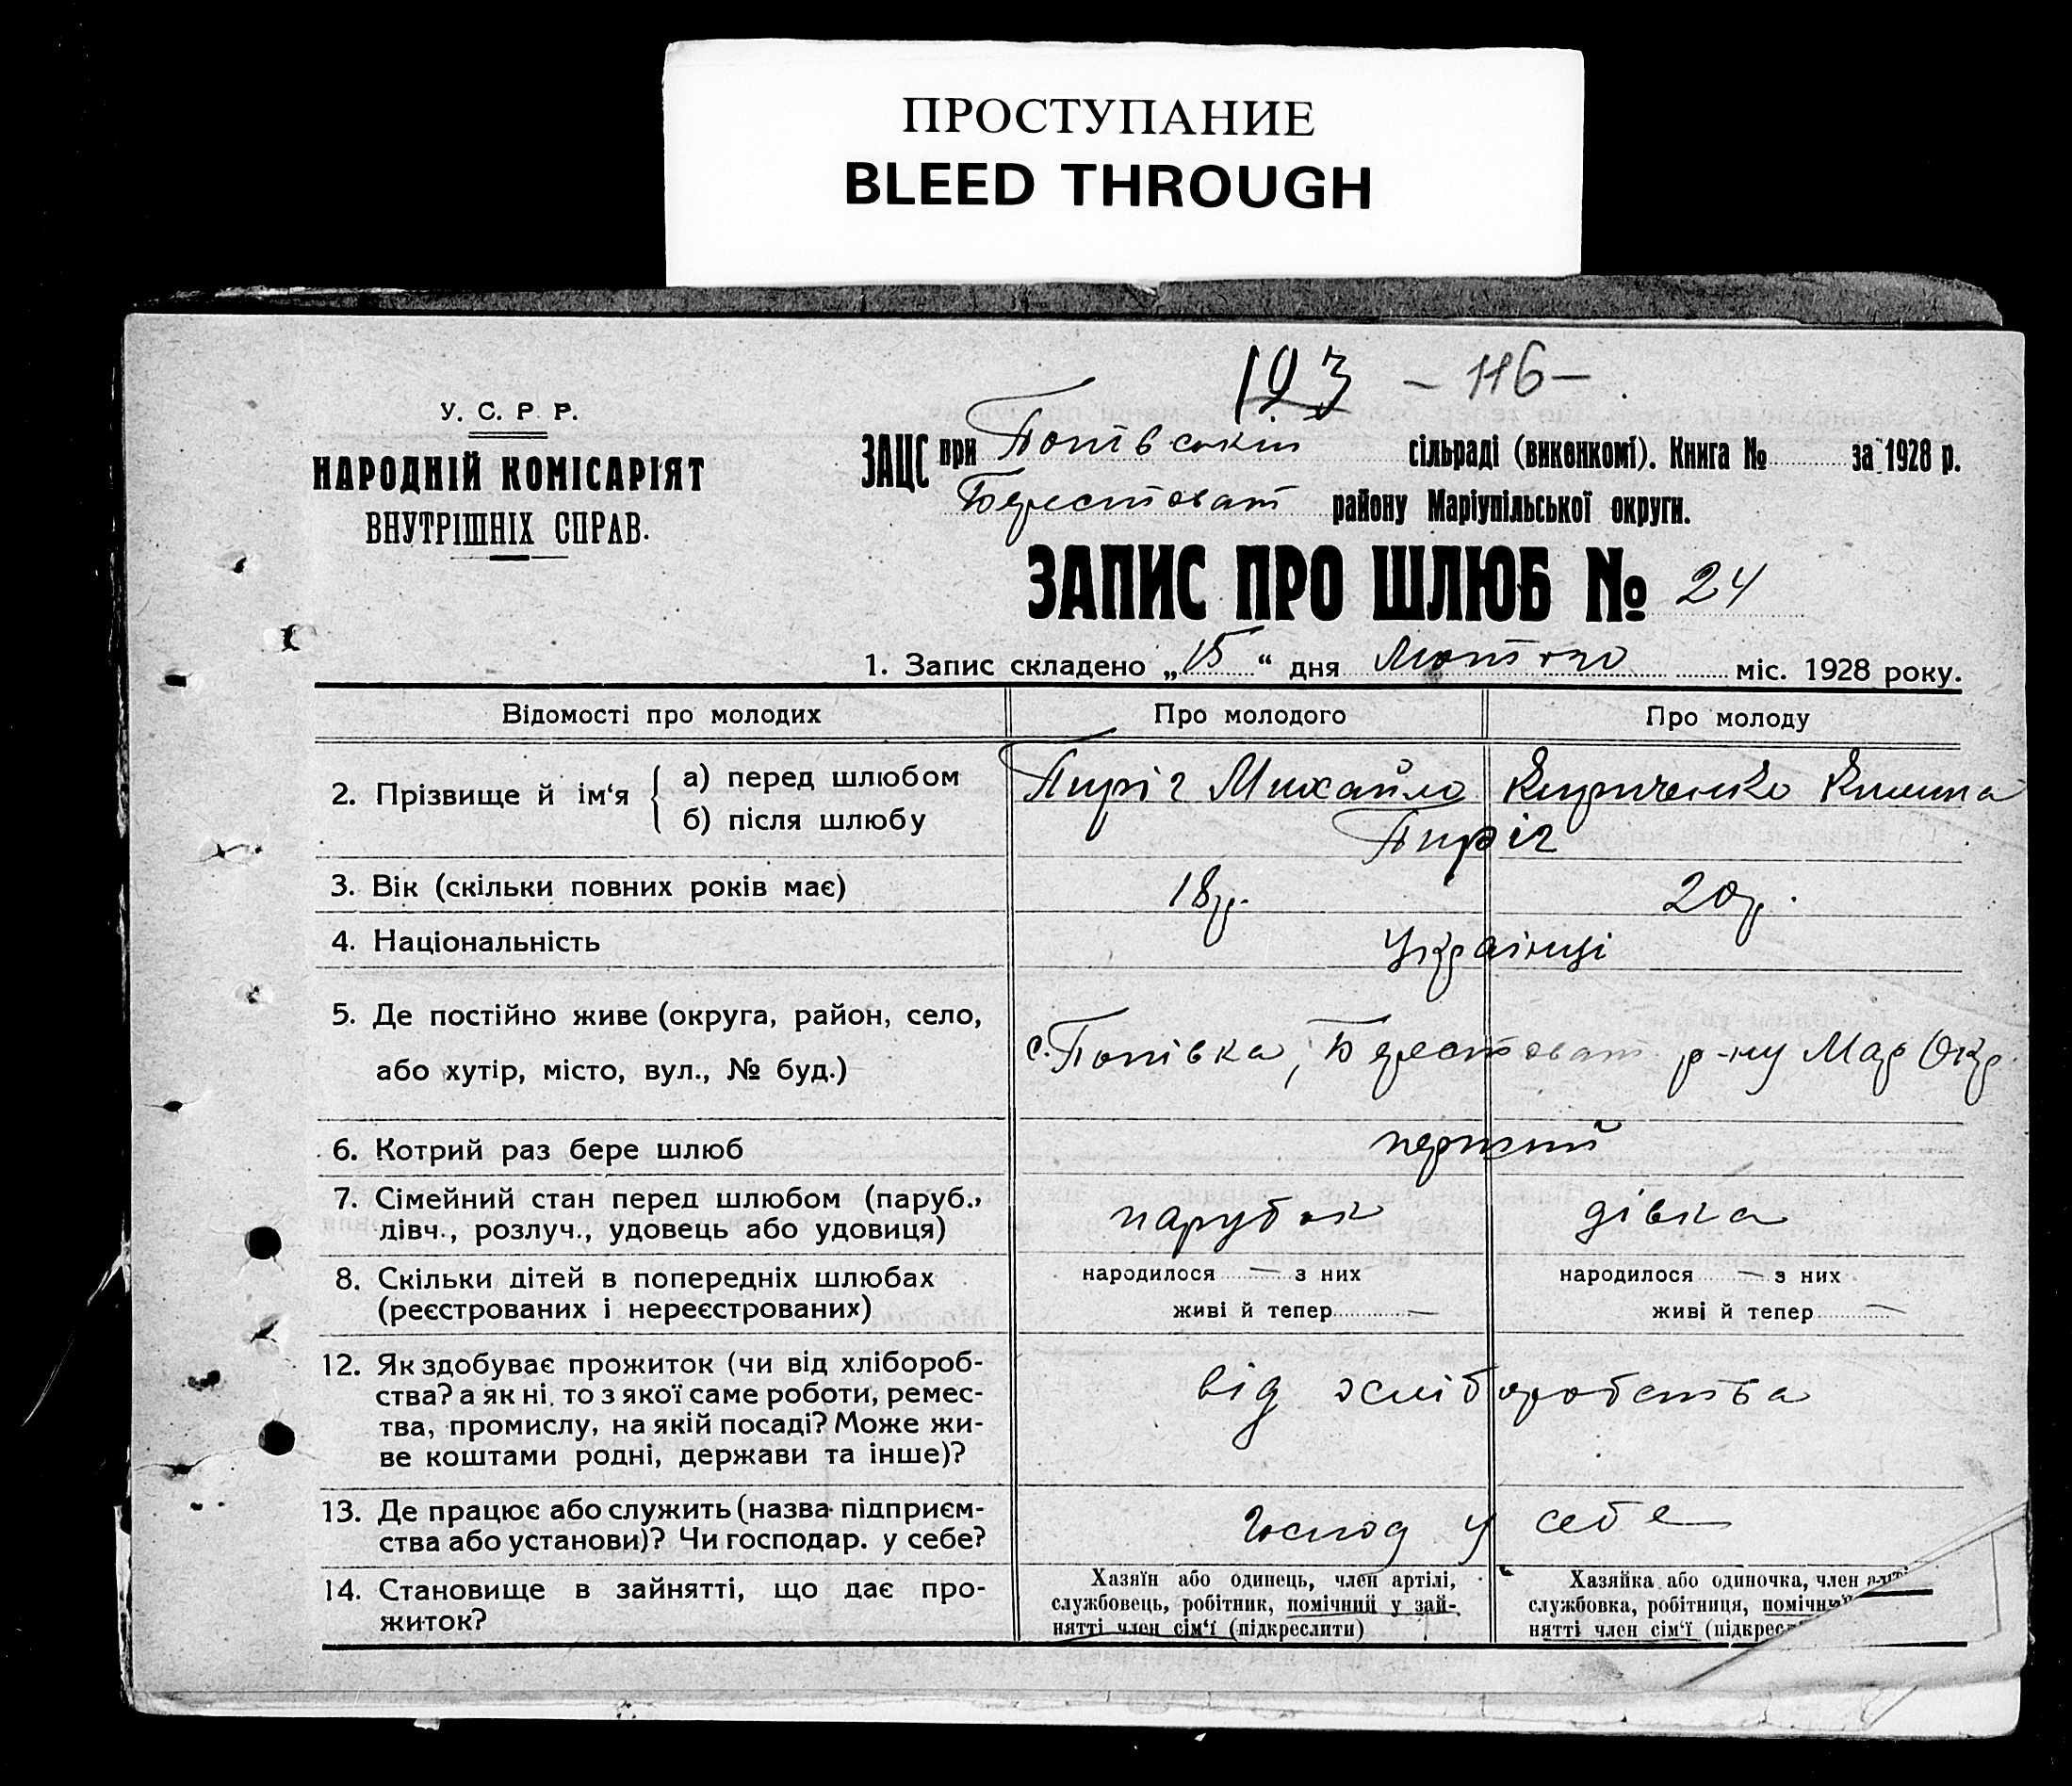 ПРОСТУПАНИЕ
BLEED THROUGH
123 - 116 -
У. С. Р. Р.
НАРОДНІЙ КОМІСАРІЯТ
ВНУТРІШНІХ СПРАВ.
ЗАЦС при Попівській сільраді (виконкомі). Книга № за 1928 р.
Берестоват району Маріупільської округи.
ЗАПИС ПРО ШЛЮБ № 24
1. Запис складено „15“ дня Лютого міс. 1928 року.
Відомості про молодих
Про молодого
Про молоду
2. Прізвище й ім‘я { а) перед шлюбом
б) після шлюбу
Пиріг Михайло
Кириченко
Пиріг
3. Вік (скільки повних років має)
18р.
20р.
4. Національність
Українці
5. Де постійно живе (округа, район, село,
або хутір, місто, вул., № буд.)
с. Попівка, Берестоват р-ну Мар Окр.
6. Котрий раз бере шлюб
перший
7. Сімейний стан перед шлюбом (паруб.,
дівч., розлуч., удовець або удовиця)
парубок
дівка
8. Скільки дітей в попередніх шлюбах
(реєстрованих і нереєстрованих)
народилося — з них
живі й тепер —
народилося — з них
живі й тепер —
12. Як здобуває прожиток (чи від хлібороб-
ства? а як ні, то з якої саме роботи, ремес-
тва, промислу, на якій посаді? Може жи-
ве коштами родні, держави та інше)?
від хліборобства
13. Де працює або служить (назва підприєм-
ства або установи)? Чи господар. у себе?
господ у себе
14. Становище в зайнятті, що дає про-
житок?
Хазяїн або одинець, член артілі,
службовець, робітник, помічний у зай-
нятті член сім‘ї (підкреслити)
Хазяйка або одиночка, член арті
службовка, робітниця, помічний
нятті член сім‘ї (підкрес